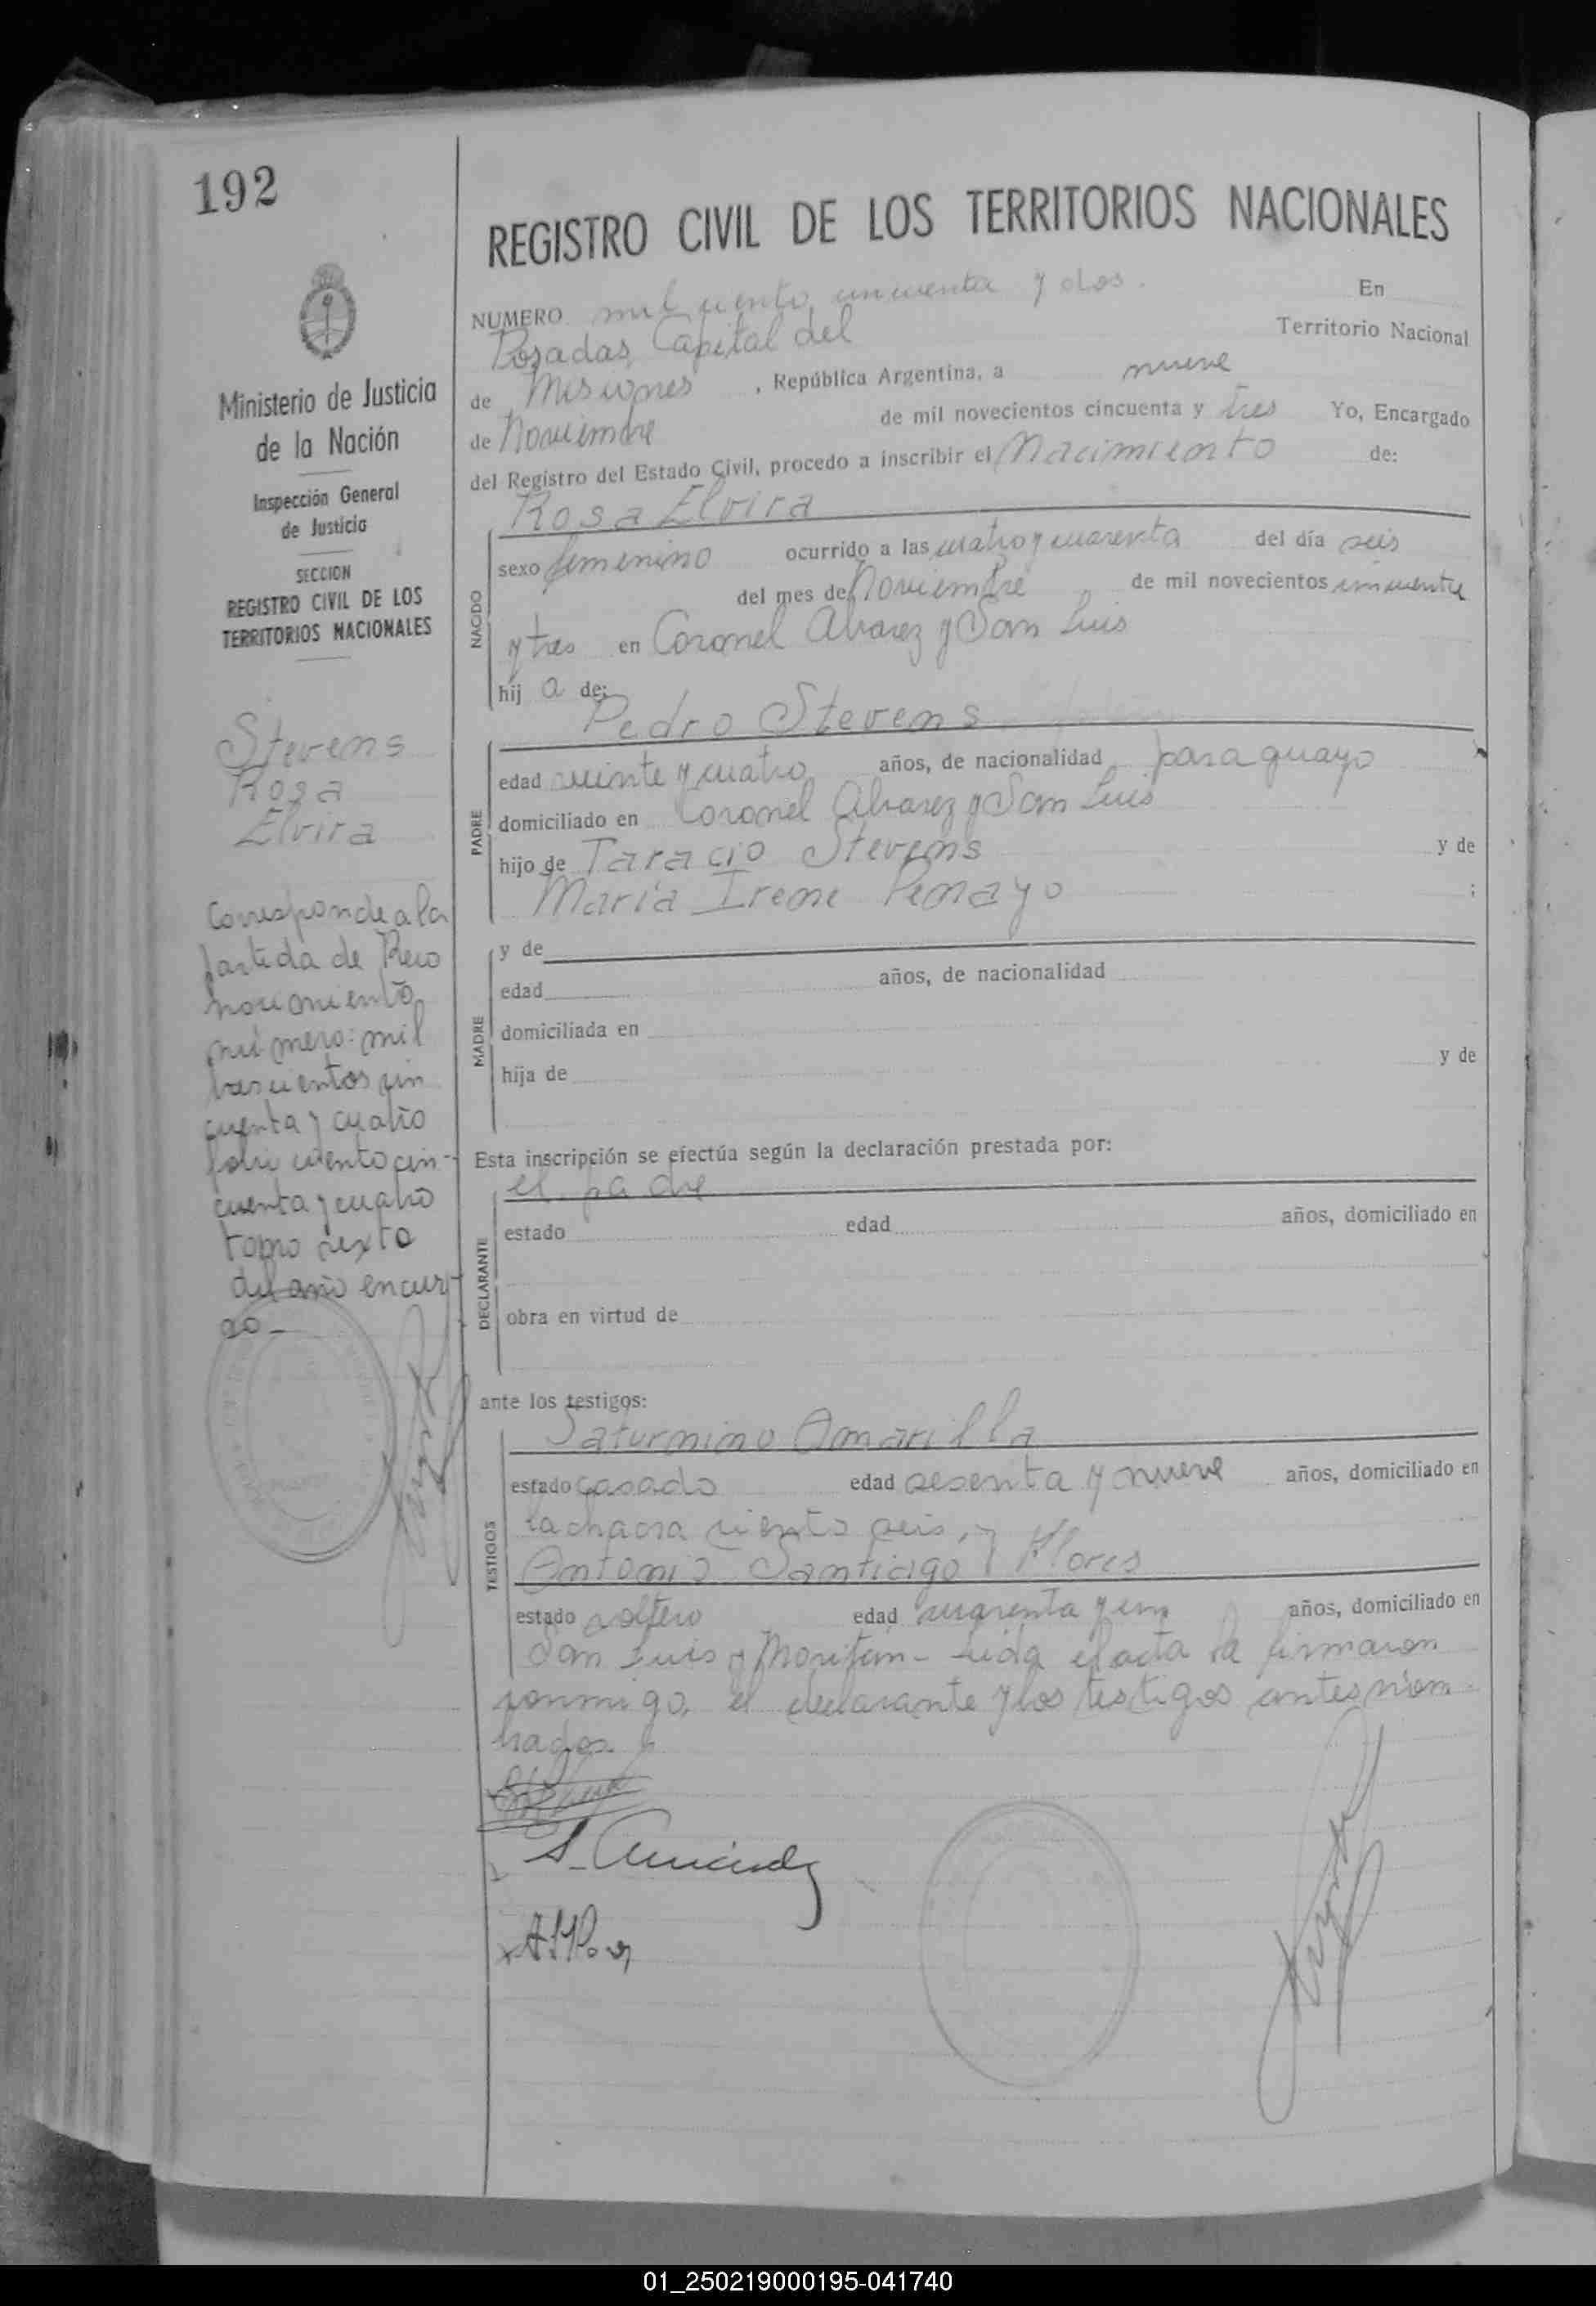 192
REGISTRO CIVIL DE LOS TERRITORIOS NACIONALES
Ministerio de Justicia
de la Nación
Inspección General
de Justicia
SECCION
REGISTRO CIVIL DE LOS
TERRITORIOS NACIONALES
Stevens
Rosa
Elvira
Corresponde a la
partida de Reco
nocimiento
número: mil
trescientos cin
cuenta y cuatro
folio ciento cin-
cuenta y cuatro
tomo sexto
del año en cur-
so-
NUMERO mil ciento cincuenta y dos. En
Posadas, Capital del Territorio Nacional
de Misiones, República Argentina, a nueve
de Noviembre de mil novecientos cincuenta y tres Yo, Encargado
del Registro del Estado Civil, procedo a inscribir el Nacimiento de:
Rosa Elvira
NACIDO
sexo femenino ocurrido a las cuatro y cuarenta del día seis
del mes de Noviembre de mil novecientos cincuenta
y tres en Coronel Alvarez y San Luis
hij a de:
Pedro Stevens
PADRE
edad veinte y cuatro años, de nacionalidad paraguayo
domiciliado en Coronel Alvarez y San Luis
hijo de Taracio Stevens y de
María Irene Penayo ;
MADRE
y de
edad años, de nacionalidad
domiciliada en
hija de y de
Esta inscripción se efectúa según la declaración prestada por:
el padre
DECLARANTE
estado edad años, domiciliado en
obra en virtud de
ante los testigos:
Saturnino Amarilla
TESTIGOS
estado casado edad sesenta y nueve años, domiciliado en
la chacra ciento seis, y
Antonio Santiago Flores
estado soltero edad cuarenta y un años, domiciliado en
San Luis y - Leída el acta la firmaron
conmigo, el declarante y los testigos antes nom
brados.
01_250219000195-041740